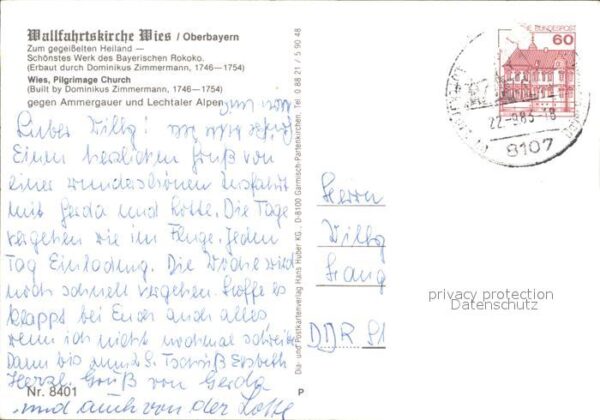 Wallfahrtskirche Wies / Oberbayern
Zum gegeißelten Heiland —
Schönstes Werk des Bayerischen Rokoko.
(Erbaut durch Dominikus Zimmermann, 1746—1754)
Wies, Pilgrimage Church
(Built by Dominikus Zimmermann, 1746—1754)
gegen Ammergauer und Lechtaler Alpen
Lieber Willy!
Einen herzlichen Gruß von
einer wunderschönen Ausfahrt
mit Gerda und Lotte. Die Tage
vergehen wie im Fluge. Jeden
Tag Einladung. Die Woche wird
noch schnell vergehen. Hoffe es
klappt bei Euch auch alles
wenn ich nicht nochmal schreibe
Dann bis zum Tschüß Elsbeth
Herzl. Gruß von Gerda
und auch von der Lotte
Nr. 8401
Dia- und Postkartenverlag Hans Huber KG., D-8100 Garmisch-Partenkirchen, Tel. 0 88 21 / 5 90 48
P
DEUTSCHE BUNDESPOST
60
22.-9.83-18
8107
Herrn
Willy
DDR
privacy protection
Datenschutz